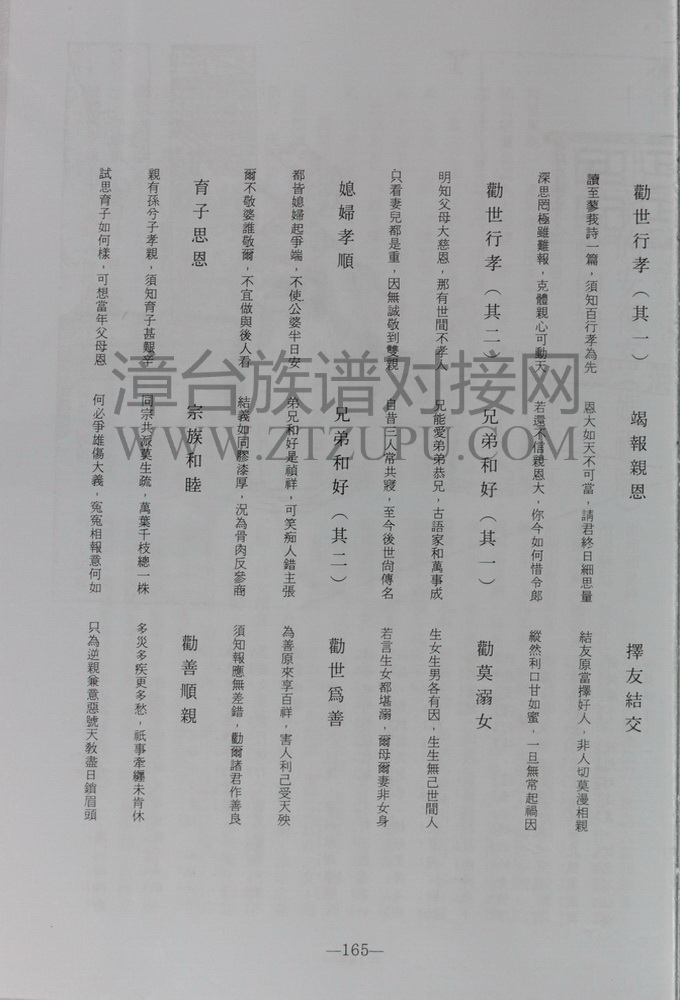 勸世行孝（其一）
讀至蓼莪詩一篇，須知百行孝為先
深思罔極雖難報，克體親心可動天
勸世行孝（其二）
明知父母大慈恩，那有世間不孝人
只看妻兒都是重，因無誠敬到雙親
媳婦孝順
都皆媳婦起爭端，不使公婆半日安
爾不敬婆誰敬爾，不宜做與後人看
育子思恩
親有孫兮子孝親，須知育子甚艱辛
試思育子如何樣，可想當年父母恩
竭報親恩
恩大如天不可當，請君終日細思量
若還不信親恩大，你今如何惜令郎
兄弟和好（其一）
兄能愛弟弟恭兄，古語家和萬事成
自昔二人常共寢，至今後世尚傳名
兄弟和好（其二）
弟兄和好是禎祥，可笑痴人錯主張
結義如同膠漆厚，況為骨肉反參商
宗族和睦
同宗共派莫生疏，萬葉千枝總一株
何必爭雄傷大義，冤冤相報意何如
擇友結交
結友原當擇好人，非人切莫漫相親
縱然利口甘如蜜，一旦無常起禍因
勸莫溺女
生女生男各有因，生生無己世間人
若言生女都堪溺，爾母爾妻非女身
勸世爲善
為善原來享百祥，害人利己受天殃
須知報應無差錯，勸爾諸君作善良
勸善順親
多災多疾更多愁，祇事牽纏未肯休
只為逆親兼意惡號天教盡日鎖眉頭
漳台族谱对接网
WWW.ZTZUPU.COM
—165—